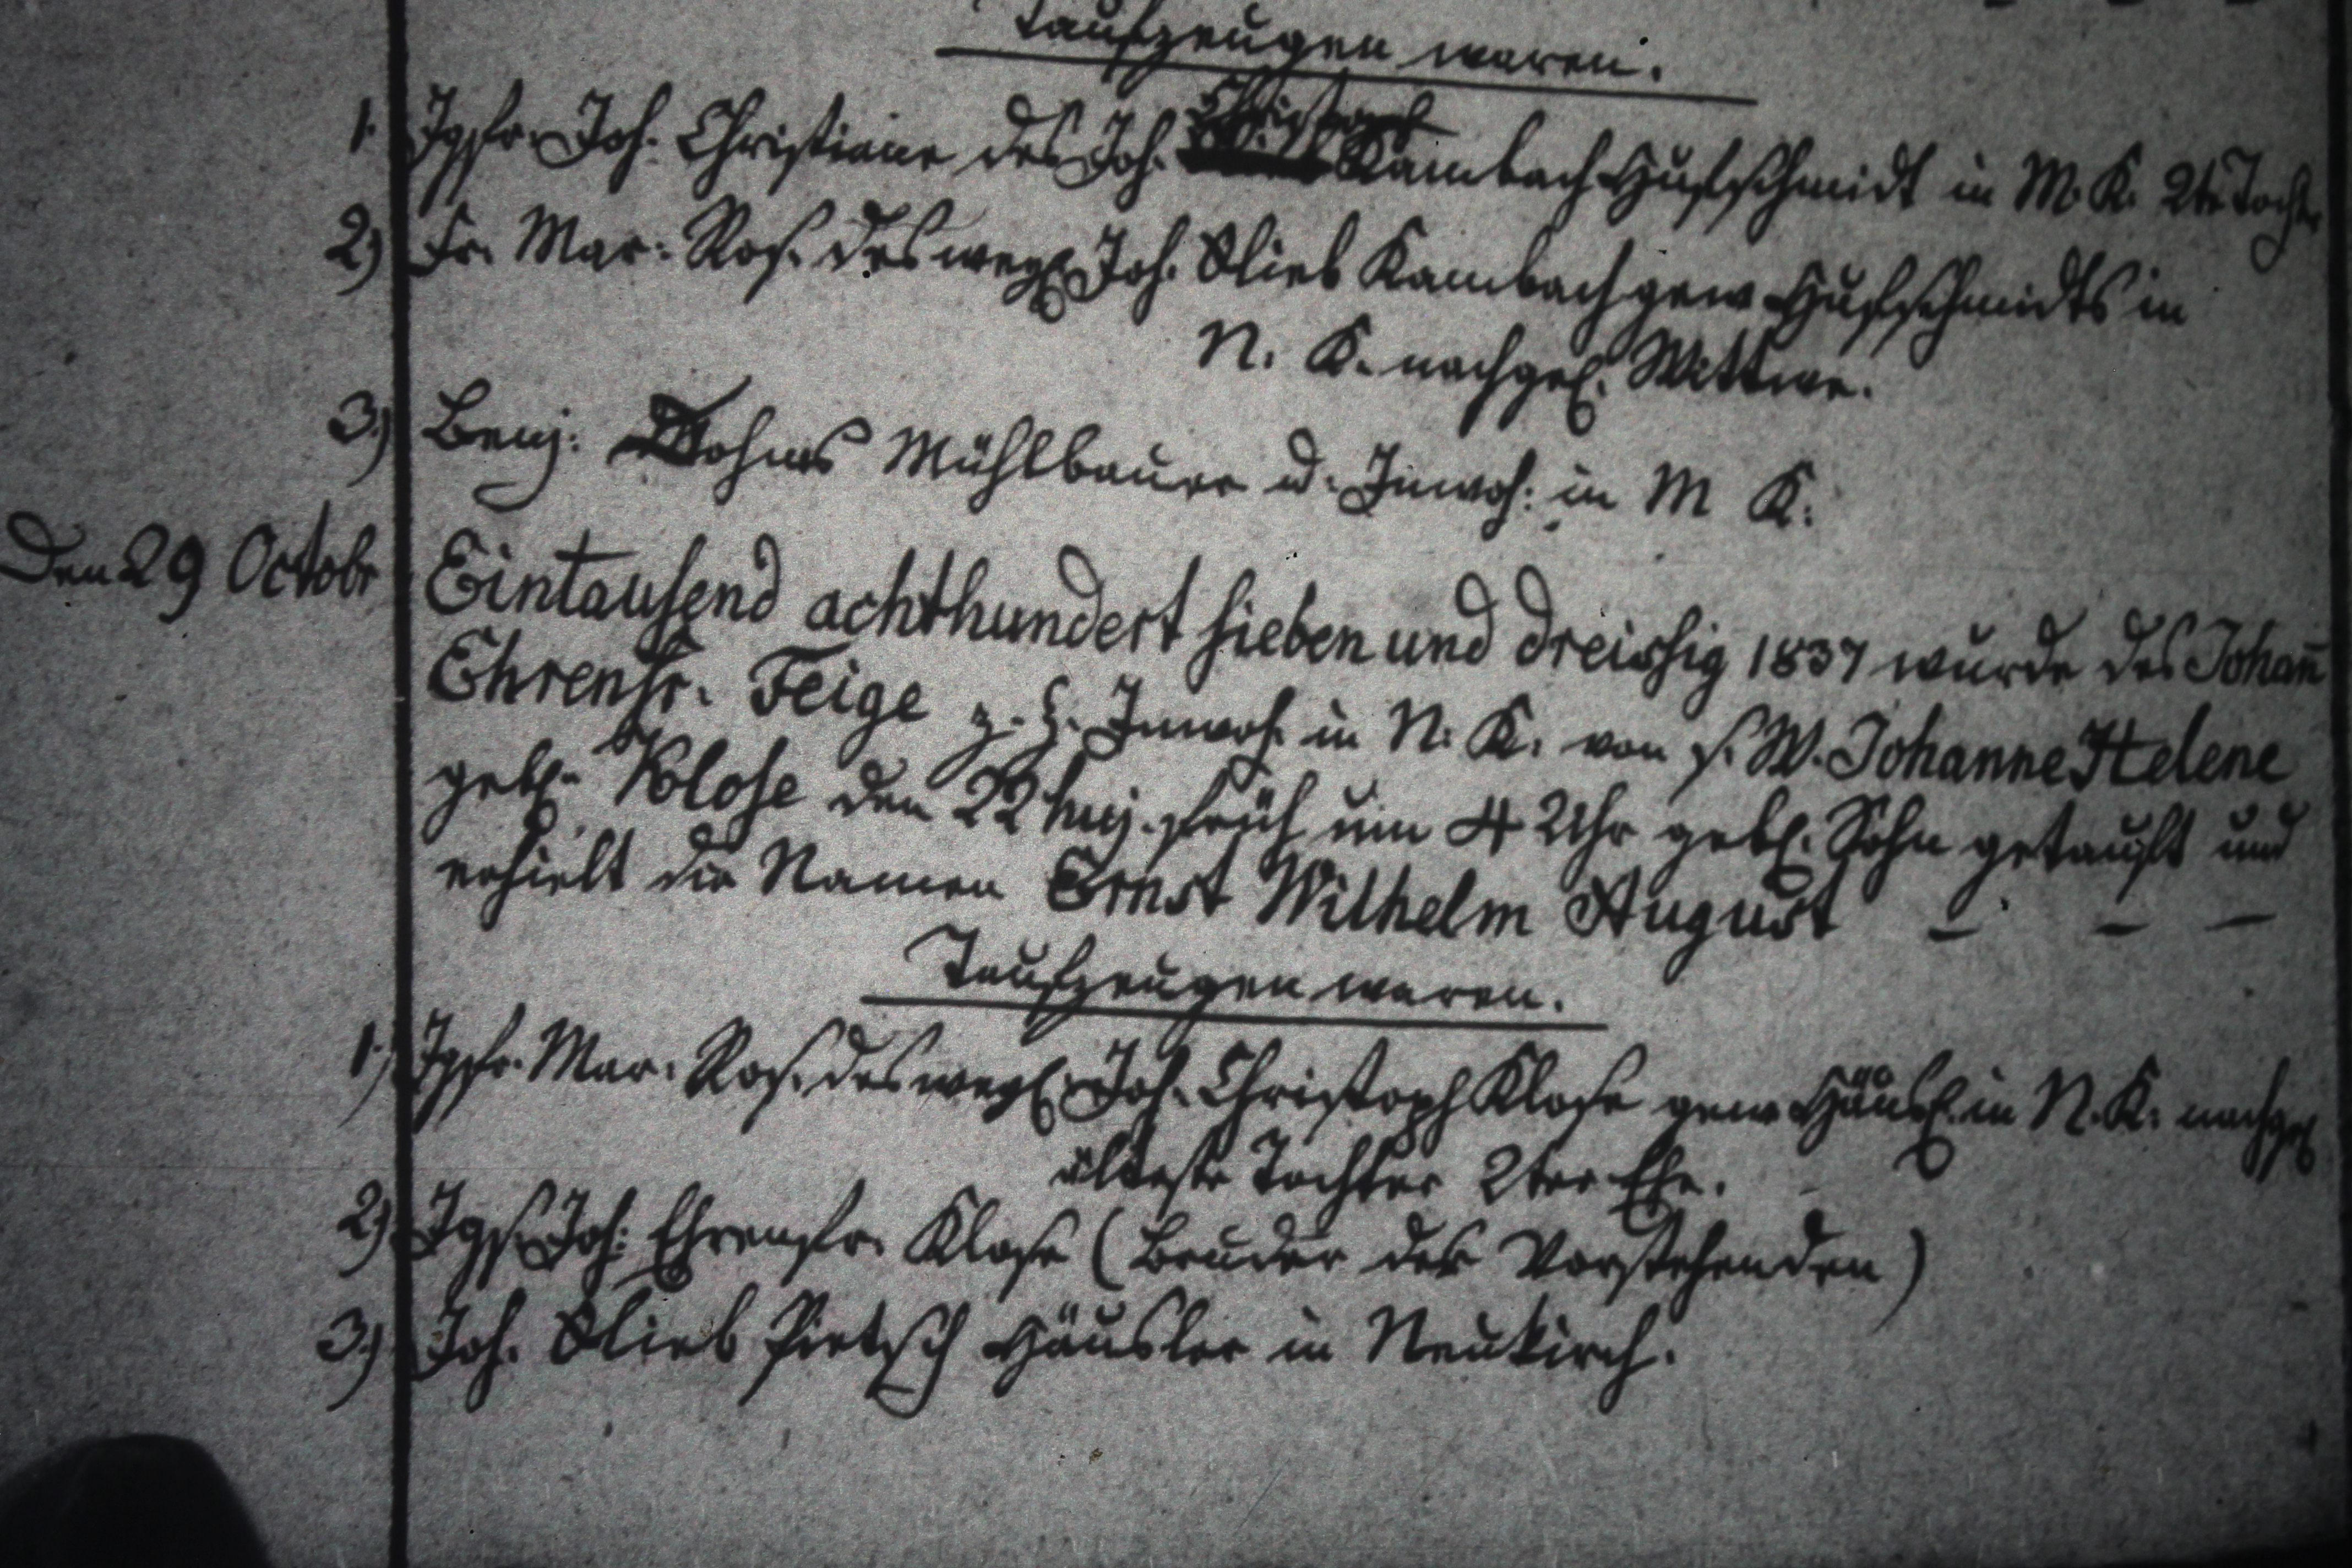 Taufzeugen waren.
1. Jgfr. Joh. Christiane des Joh. Christoph Kambach Hufschmidt in M. K. 2te Tochter
2) Fr. Mar: Ros. des weyl. Joh. Glieb Kambach gew Hufschmidts in
N. K. nachgel. Wittwe.
3) Benj: Mühlbauer u. Inwoh: in M K.
Den 29 Octobr Eintausend achthundert sieben und dreissig 1837 wurde des Johan̄
Ehrenfr. Feige z. Z. Inwoh. in N. K. von s. W. Johanne Helene
gebl. Klose den 22 huj. früh um 4 Uhr gebl. Sohn getauft und
erhielt die Namen Ernst Wilhelm August - - -
Taufzeugen waren.
1) Jgfr. Mar. Ros. des weyl. Joh. Christoph Klose gew Häusl. in N. K. nachgel
älteste Tochter 2ter Ehe.
2) Jggs. Joh: Ehrenfr. Klose (Bruder der Vorstehenden)
3) Joh. Glieb Pietsch Häusler in Neukirch.